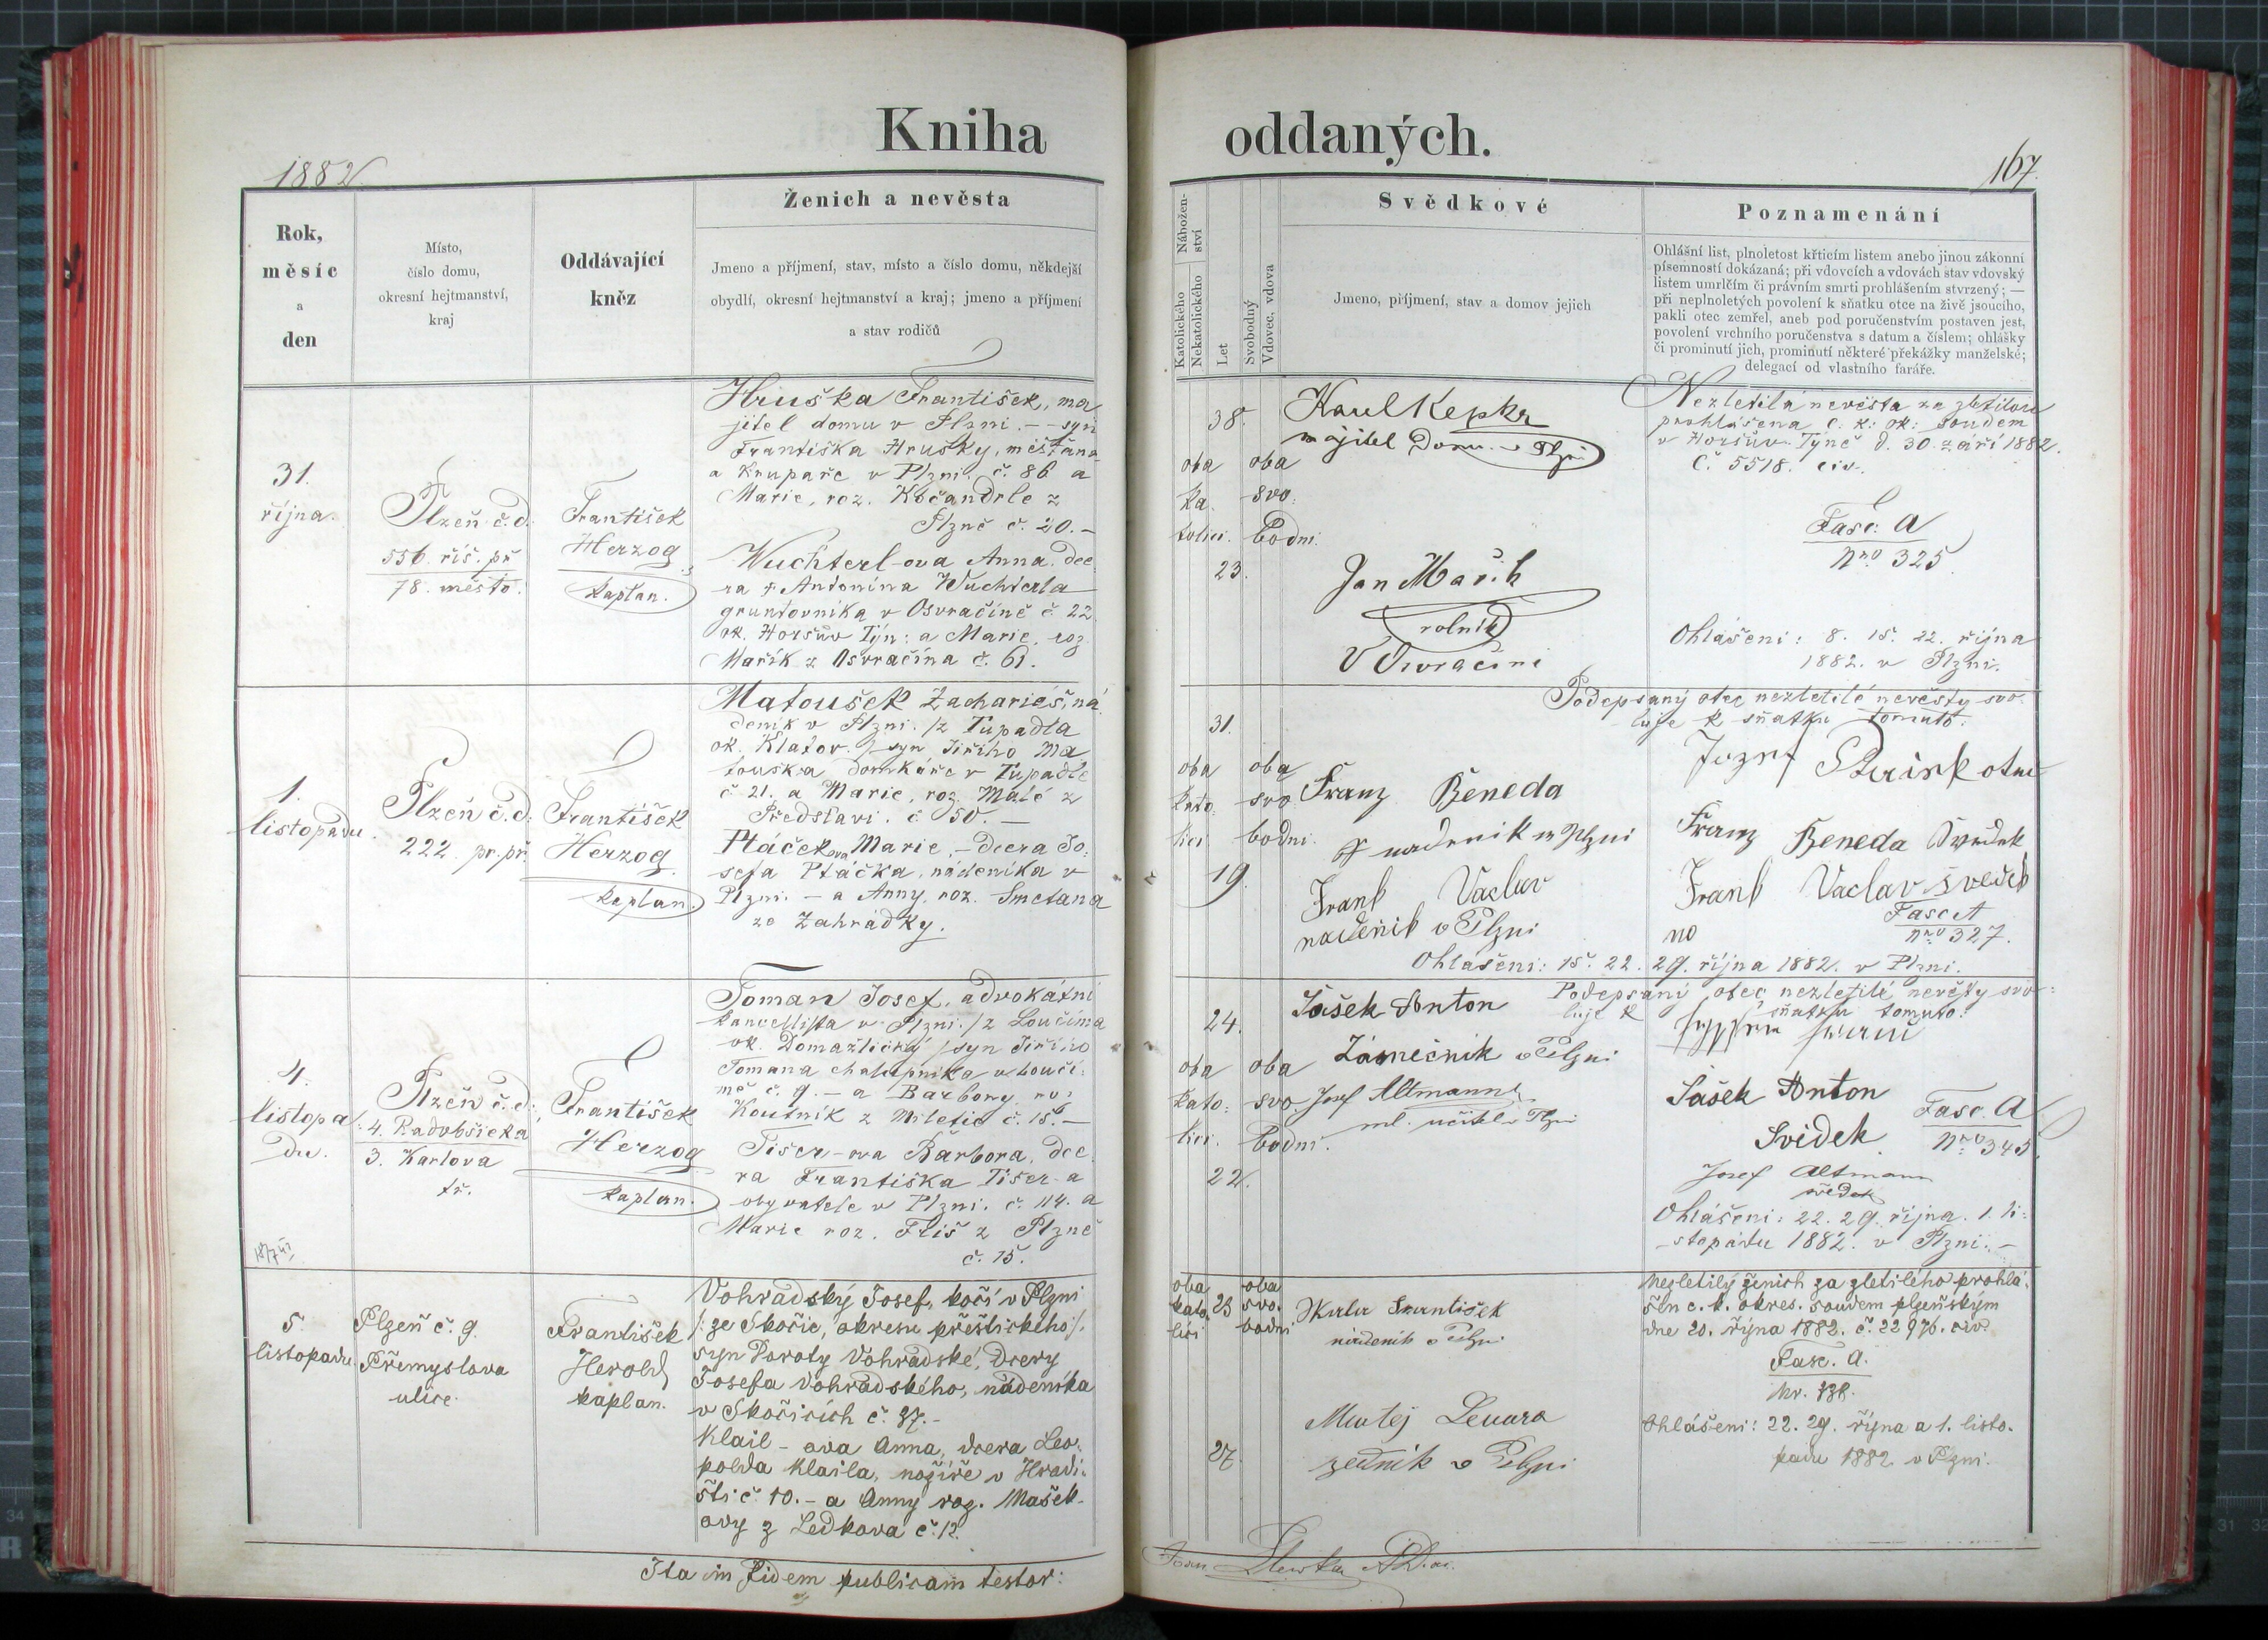 Kniha oddaných.
1882
167.
Rok,
měsíc
a
den
Místo,
číslo domu,
okresní hejtmanství,
kraj
Oddávající
kněz
Ženich a nevěsta
Jmeno a příjmení, stav, místo a číslo domu, někdejší
obydlí, okresní hejtmanství a kraj; jmeno a příjmení
a stav rodičů
Nábožen-
ství
Katolického
Nekatolického
Let
Svobodný
Vdovec, vdova
Svědkové
Jmeno, příjmení, stav a domov jejich
Poznamenání
Ohlášní list, plnoletost křticím listem anebo jinou zákonní
písemností dokázaná; při vdovcích a vdovách stav vdovský
listem umrlčím či právním smrti prohlášením stvrzený; —
při neplnoletých povolení k sňatku otce na živě jsoucího,
pakli otec zemřel, aneb pod poručenstvím postaven jest,
povolení vrchního poručenstva s datum a číslem; ohlášky
či prominutí jich, prominutí některé překážky manželské;
delegací od vlastního faráře.
31.
října.
Plzeň č. d.
556. říš. př
78. město.
František
Herzog
kaplan.
Hruška František, ma
jitel domu v Plzni. — syn
Františka Hrušky, měšťana
a krupaře v Plzni. č. 86 a
Marie, roz. Kočandrle z
Plzně č. 20. —
Wuchterl-ova Anna, dce
ra † Antonína Wuchterla
gruntovníka v Osvračíně č. 22
ok. Horšův Týn: a Marie, roz.
Mařík z Osvračína č. 61.
38.
oba
ka
tolíci.
23.
oba
svo
bodni.
Karel Kepka
majitel Domu v Plzni
Jan Mařík
rolník
V Osvračíni
Nezletilá nevěsta za zletilou
prohlášena c. k. ok. soudem
v Horšův. Týně d. 30. září 1882.
č. 5518. civ.
Fasc: A
Nro 325
Ohlášeni: 8. 15. 22. října
1882. v Plzni.
1.
listopadu.
Plzeň č. d.
222. pr. př.
František
Herzog
kaplan.
Matoušek Zachariáš, ná
deník v Plzni. /z Tupadla
ok. Klatov./ syn Jiřího Ma
touška domkáře v Tupadle
č. 21. a Marie, roz. Malé z
Předslavi. č. 50. —
Ptáčkova Marie, — dcera Jo
sefa Ptáčka, nádeníka v
Plzni. — a Anny, roz. Smetana
ze Zahrádky.
31.
oba
kato
líci
19.
oba
svo
bodni.
Franz Beneda
nadenik w Plzni
Frank Vaclav
nadenik v Plzni
Podepsaný otec nezletilé nevěsty svo
luje k sňatku tomuto.
Franz Beneda
Frank Vaclav svedek
Fasc A
Nro 327.
Ohlášeni: 15. 22. 29. října 1882. v Plzni.
4.
listopa
du.
Plzeň č. d.
4. Radobšická
3. Karlova
tř.
František
Herzog
kaplan.
Toman Josef, advokátní
kancellista v Plzni. /z Loučima
ok. Domažlický/ syn Jiřího
Tomana chalupníka v Louči
mě č. 9. — a Barbory, ro
Koutník z Miletic č. 15. —
Tiser-ova Barbora, dce
ra Františka Tiser-a
obyvatele v Plzni. č. 114. a
Marie roz. Fliš z Plzně
č. 15.
24.
oba
kato
líci.
22.
oba
svo
bodni.
Šašek Anton
Zámečnik v Plzni
Josef Altmann
ml. učitel v Plzni
Podepsaný otec nezletilé nevěsty svo
luje k sňatku tomuto.
Šašek Anton
Svidek
Fasc. A
Nro 343.
Josef Altmann
svědek
Ohlášeni: 22. 29. října. 1. li
stopadu 1882. v Plzni. —
5.
listopadu.
Plzeň č. 9.
Přemyslova
ulice.
František
Herold
kaplan.
Vohradský Josef, kočí v Plzni
/: ze Skočic, okresu přeštického:/
syn Doroty Vohradské, dcery
Josefa Vohradského, nádeníka
v Skočicích č. 37. —
Klail-ova Anna, dcera Leo
polda Klaila, nožíře v Hradi
šti č. 10. — a Anny roz. Mašek-
ovy z Ledkova č. 12.
oba
kato
líci
23
oba
svo.
bodni
27.
František
nádeník v Plzni
Matej
zedník v Plzni
Nezletilý ženich za zletilého prohlá
šen c. k. okres. soudem plzeňským
dne 20. října 1882. č. 22976. civ.
Fasc. A.
Nr. 338.
Ohlášeni: 22. 29. října a 1. listo.
padu 1882 v Plzni.
Ita in fidem publicam testor: